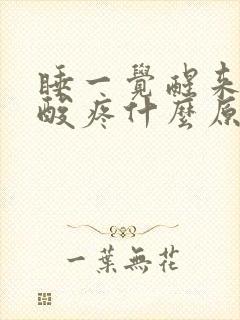 睡一覺醒来
酸疼什麼原
一葉無花